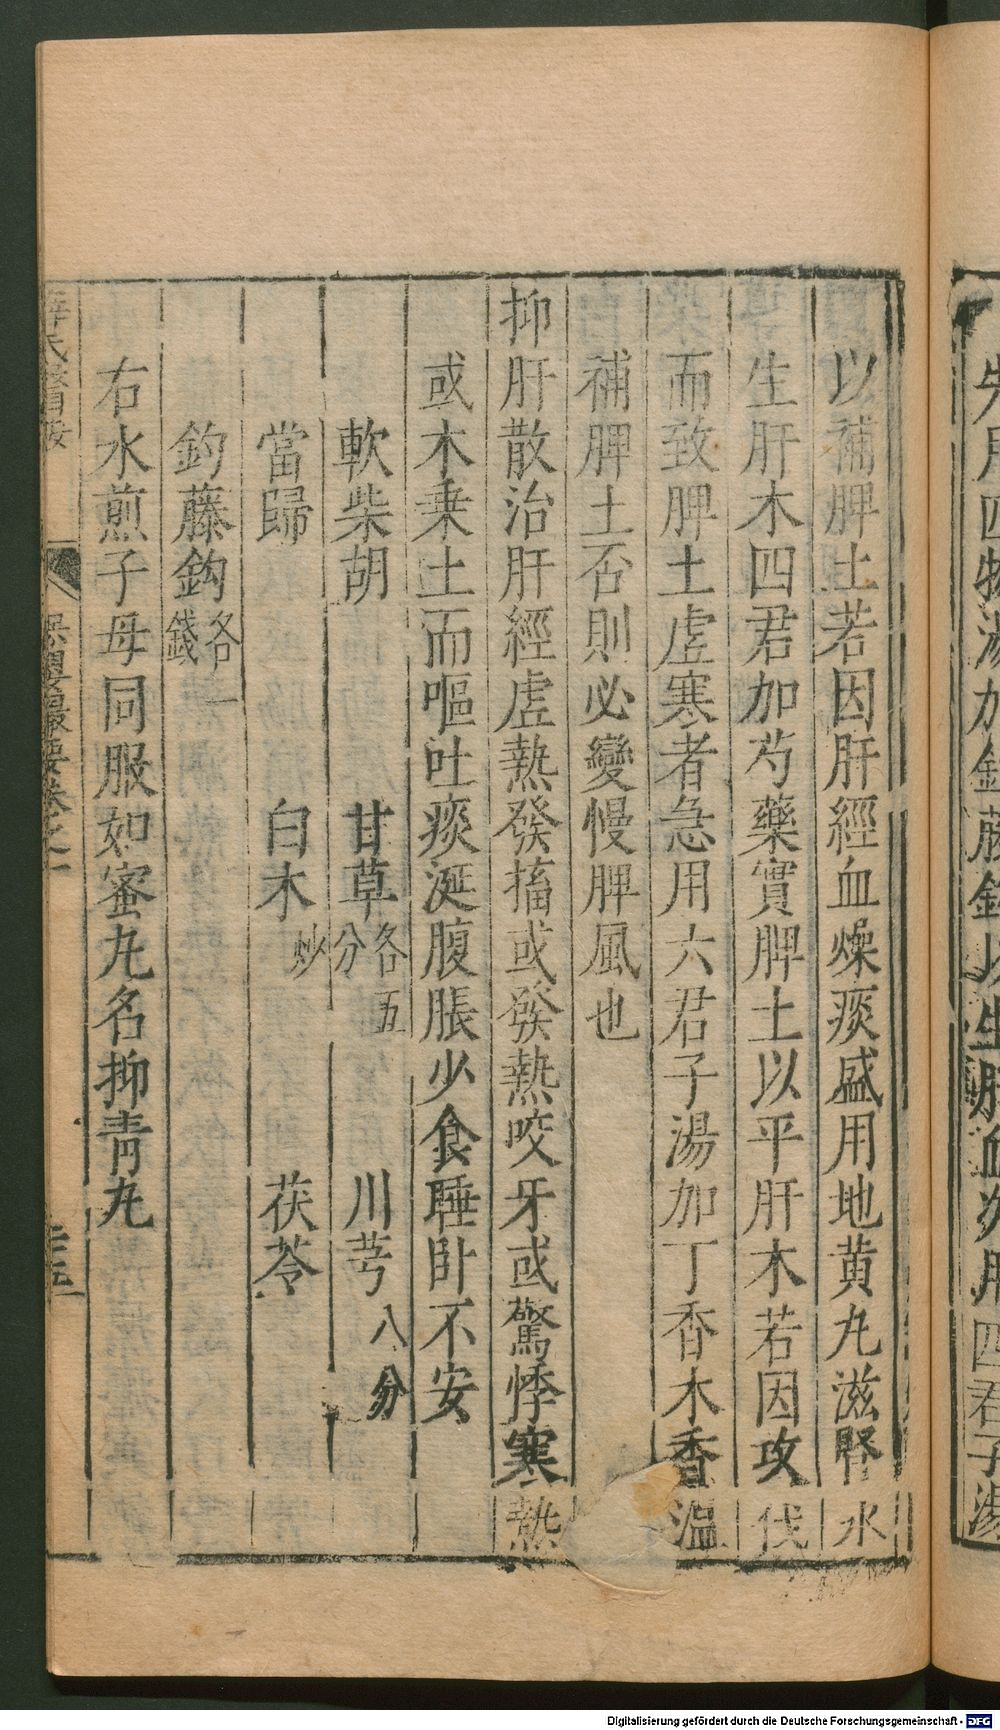 以補脾土若因肝經血燥痰盛用地黄丸滋腎水
生肝木四君加芍藥實脾土以平肝木若因攻伐
而致脾土虛寒者急用六君子湯加丁香木香温
補脾土否則必變慢脾風也
抑肝散治肝經虛熱發搐或發熱咬牙或驚悸寒熱
或木乗土而嘔吐痰涎腹脹少食睡卧不安
軟柴胡 甘草各五分 川芎八分
當歸 白木炒 茯苓
釣藤鈎各一錢
右水煎子母同服如蜜丸名抑青丸
薛氏醫按 保嬰撮要卷之一 二十五
先用四物湯加釣藤鈎以生肝血次用四君子湯
Digitalisierung gefördert durch die Deutsche Forschungsgemeinschaft - DFG